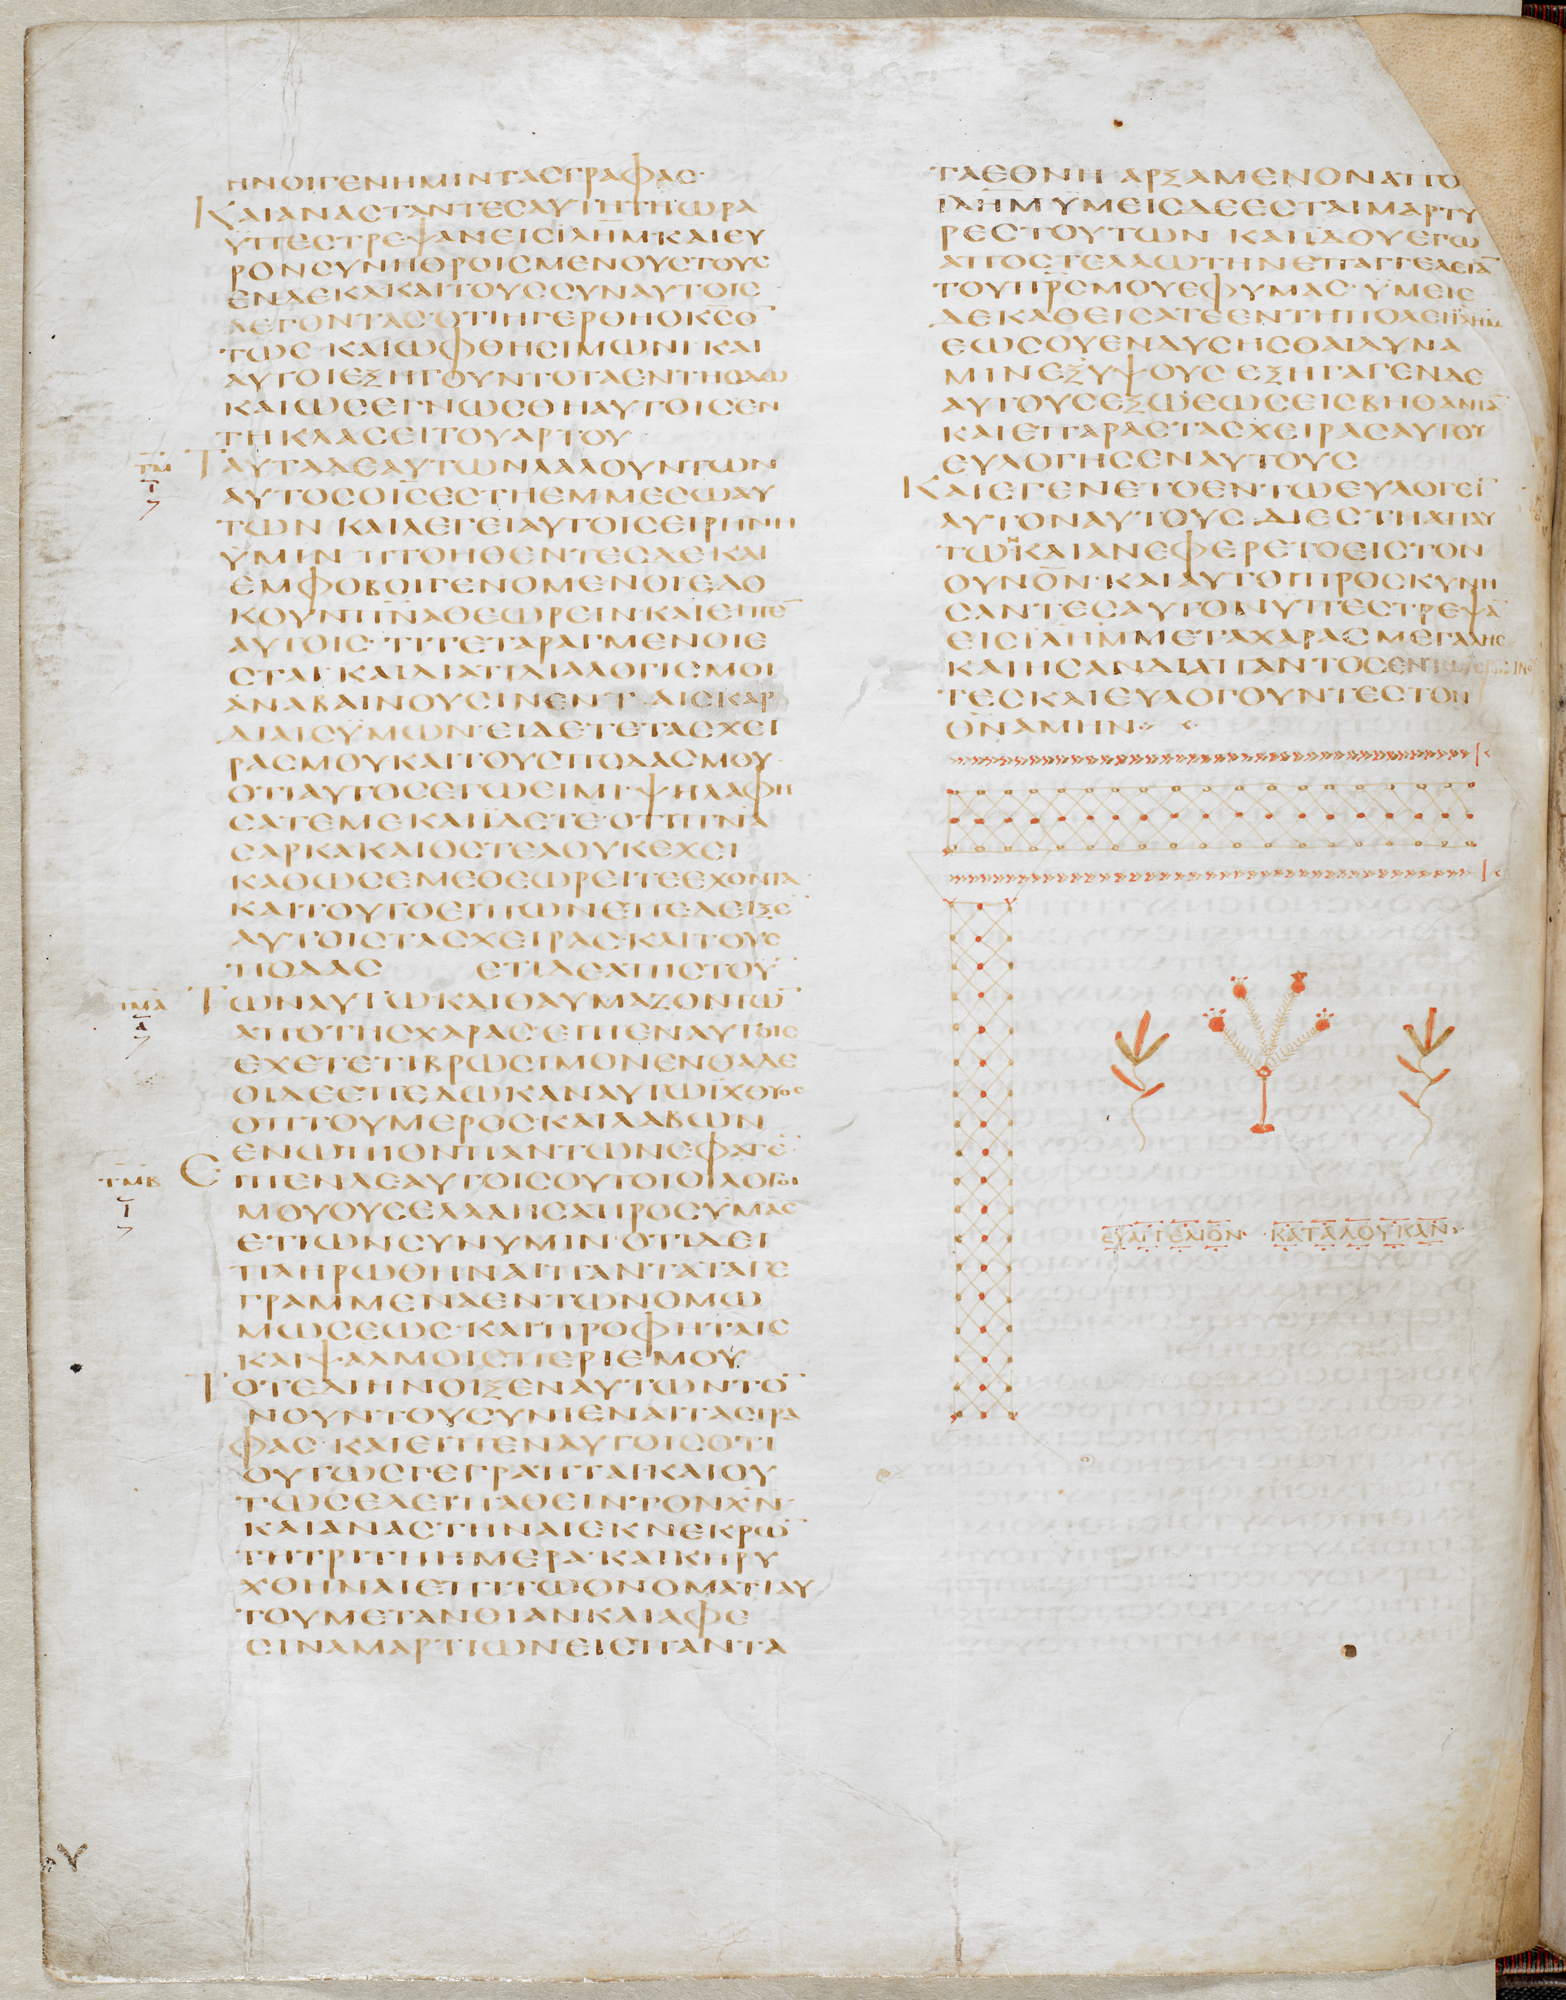 ΗΝΟΙΓΕΝΗΜΙΝΤΑΣΓΡΑΦΑΣ·
ΚΑΙΑΝΑΣΤΑΝΤΕΣΑΥΤΗΤΗΩΡΑ
ΥΠΕΣΤΡΕΨΑΝΕΙΣΙΛΗΜ·ΚΑΙΕΥ
ΡΟΝΣΥΝΗΘΡΟΙΣΜΕΝΟΥΣΤΟΥΣ
ΕΝΔΕΚΑΚΑΙΤΟΥΣΣΥΝΑΥΤΟΙΣ
ΛΕΓΟΝΤΑΣ·ΟΤΙΗΓΕΡΘΗΟΚΣΟ̅
ΤΩΣ·ΚΑΙΩΦΘΗΣΙΜΩΝΙ·ΚΑΙ
ΑΥΤΟΙΕΞΗΓΟΥΝΤΟΤΑΕΝΤΗΟΔΩ
ΚΑΙΩΣΕΓΝΩΣΘΗΑΥΤΟΙΣΕΝ
ΤΗΚΛΑΣΕΙΤΟΥΑΡΤΟΥ·
ΤΜ ΤΑΥΤΑΔΕΑΥΤΩΝΛΑΛΟΥΝΤΩΝ
ΑΥΤΟΣΟΙΣΕΣΤΗΕΜΜΕΣΩΑΥ
ΤΩΝ ΚΑΙΛΕΓΕΙΑΥΤΟΙΣΕΙΡΗΝΗ
ΥΜΙΝ ΠΤΟΗΘΕΝΤΕΣΔΕ·ΚΑΙ
ΕΜΦΟΒΟΙΓΕΝΟΜΕΝΟΙΕΔΟ
ΚΟΥΝΠΝ̅Α̅ΘΕΩΡΕΙΝ·ΚΑΙΕΙΠΕ̅
ΑΥΤΟΙΣ·ΤΙΤΕΤΑΡΑΓΜΕΝΟΙΕ
ΣΤΑΙ·ΚΑΙΔΙΑΤΙΔΙΑΛΟΓΙΣΜΟΙ
ΑΝΑΒΑΙΝΟΥΣΙΝΕΝΤΑΙΣΚΑΡ
ΔΙΑΙΣΥΜΩΝ·ΕΙΔΕΤΕΤΑΣΧΕΙ
ΡΑΣΜΟΥΚΑΙΤΟΥΣΠΟΔΑΣΜΟΥ·
ΟΤΙΑΥΤΟΣΕΓΩΕΙΜΙ·ΨΗΛΑΦΗ
ΣΑΤΕΜΕΚΑΙΙΔΕΤΕ·ΟΤΙΠΝ̅Α̅
ΣΑΡΚΑΚΑΙΟΣΤΕΑΟΥΚΕΧΕΙ
ΚΑΘΩΣΕΜΕΘΕΩΡΕΙΤΕΕΧΟΝΤΑ·
ΚΑΙΤΟΥΤΟΕΙΠΩΝΕΠΕΔΕΙΞΕ̅
ΑΥΤΟΙΣΤΑΣΧΕΙΡΑΣ·ΚΑΙΤΟΥΣ
ΠΟΔΑΣ ΕΤΙΔΕΑΠΙΣΤΟΥ̅
ΤΜΑ ΤΩΝΑΥΤΩΚΑΙΘΑΥΜΑΖΟΝΤΩ̅
ΑΠΟΤΗΣΧΑΡΑΣ·ΕΙΠΕΝΑΥΤΟΙΣ
ΕΧΕΤΕΤΙΒΡΩΣΙΜΟΝΕΝΘΑΔΕ
ΟΙΔΕΕΠΕΔΩΚΑΝΑΥΤΩΙΧΘΥΟΣ
ΟΠΤΟΥΜΕΡΟΣΚΑΙΛΑΒΩΝ
ΕΝΩΠΙΟΝΠΑΝΤΩΝΕΦΑΓΕ̅·
ΤΜΒ ΕΙΠΕΝΔΕΑΥΤΟΙΣΟΥΤΟΙΟΙΛΟΓΟΙ
ΜΟΥΟΥΣΕΛΑΛΗΣΑΠΡΟΣΥΜΑΣ
ΕΤΙΩΝΣΥΝΥΜΙΝ·ΟΤΙΔΕΙ
ΠΛΗΡΩΘΗΝΑΙΠΑΝΤΑΤΑΓΕ
ΓΡΑΜΜΕΝΑΕΝΤΩΝΟΜΩ
ΜΩΣΕΩΣ·ΚΑΙΠΡΟΦΗΤΑΙΣ
ΚΑΙΨΑΛΜΟΙΣΠΕΡΙΕΜΟΥ·
ΤΟΤΕΔΙΗΝΟΙΞΕΝΑΥΤΩΝΤΟ̅
ΝΟΥΝ·ΤΟΥΣΥΝΙΕΝΑΙΤΑΣΓΡΑ
ΦΑΣ·ΚΑΙΕΙΠΕΝΑΥΤΟΙΣΟΤΙ
ΟΥΤΩΣΓΕΓΡΑΠΤΑΙ·ΚΑΙΟΥ
ΤΩΣΕΔΕΙΠΑΘΕΙΝΤΟΝΧ̅Ν̅
ΚΑΙΑΝΑΣΤΗΝΑΙΕΚΝΕΚΡΩ̅
ΤΗΤΡΙΤΗΗΜΕΡΑ·ΚΑΙΚΗΡΥ
ΧΘΗΝΑΙΕΠΙΤΩΟΝΟΜΑΤΙΑΥ
ΤΟΥΜΕΤΑΝΟΙΑΝΚΑΙΑΦΕ
ΣΙΝΑΜΑΡΤΙΩΝΕΙΣΠΑΝΤΑ
ΤΑΕΘΝΗ ΑΡΞΑΜΕΝΟΝΑΠΟ
ΙΛΗΜ ΥΜΕΙΣΔΕΕΣΤΑΙΜΑΡΤΥ
ΡΕΣΤΟΥΤΩΝ ΚΑΙΙΔΟΥΕΓΩ
ΑΠΟΣΤΕΛΛΩΤΗΝΕΠΑΓΓΕΛΕΙΑ̅
ΤΟΥΠΡ̅Σ̅ΜΟΥΕΦΥΜΑΣ·ΥΜΕΙΣ
ΔΕΚΑΘΕΙΣΑΤΕΕΝΤΗΠΟΛΕΙΙΛΗΜ
ΕΩΣΟΥΕΝΔΥΣΗΣΘΑΙΔΥΝΑ
ΜΙΝΕΞΥΨΟΥΣ·ΕΞΗΓΑΓΕΝΔΕ
ΑΥΤΟΥΣΕΞΩΕΩΣΕΙΣΒΗΘΑΝΙΑ̅
ΚΑΙΕΠΑΡΑΣΤΑΣΧΕΙΡΑΣΑΥΤΟΥ
ΕΥΛΟΓΗΣΕΝΑΥΤΟΥΣ
ΚΑΙΕΓΕΝΕΤΟΕΝΤΩΕΥΛΟΓΕΙ̅
ΑΥΤΟΝΑΥΤΟΥΣ·ΔΙΕΣΤΗΑΠΑΥ
ΤΩΝΚΑΙΑΝΕΦΕΡΕΤΟΕΙΣΤΟΝ
ΟΥΝΟ̅Ν·ΚΑΙΑΥΤΟΙΠΡΟΣΚΥΝΗ
ΣΑΝΤΕΣΑΥΤΟΝΥΠΕΣΤΡΕΨΑ̅
ΕΙΣΙΛΗΜΜΕΤΑΧΑΡΑΣΜΕΓΑΛΗΣ
ΚΑΙΗΣΑΝΔΙΑΠΑΝΤΟΣΕΝΤΩ
ΤΕΣΚΑΙΕΥΛΟΓΟΥΝΤΕΣΤΟΝ
Θ̅Ν̅ΑΜΗΝ
ΕΥΑΓΓΕΛΙΟΝ· ·ΚΑΤΑΛΟΥΚΑΝ·